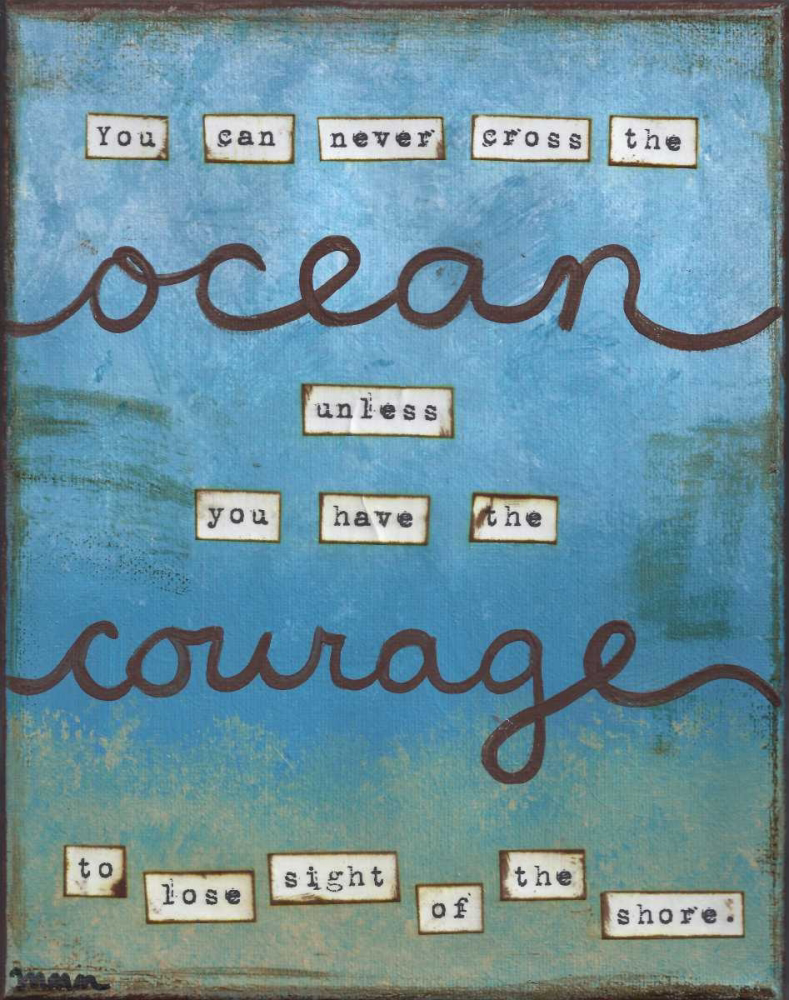 You can never cross the
ocean
unless
you have the
courage
to lose sight of the shore.